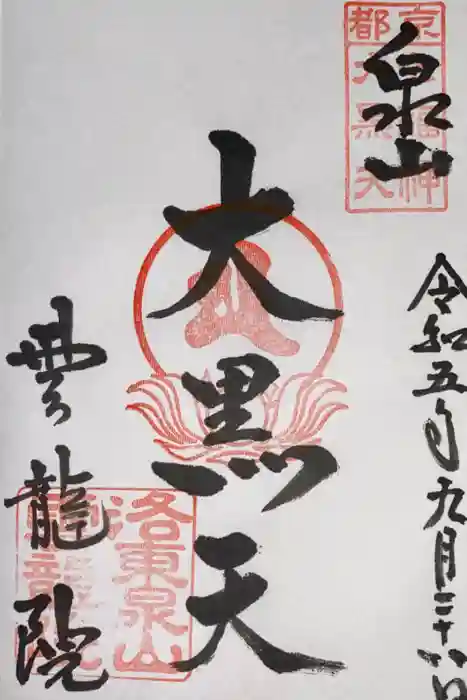 泉山
令和五年九月二十八日
大黒天
雲龍院
京都七福神
大黒天
洛東泉山
雲龍院